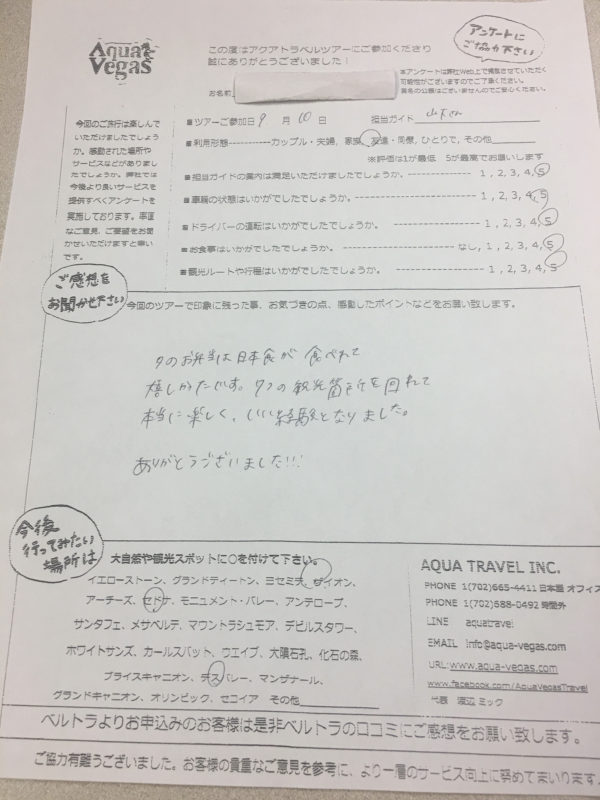 Aqua Vegas
この度はアクアトラベルツアーにご参加くださり
誠にありがとうございました！
アンケートに
ご協力下さい
本アンケートは弊社Web上で掲載させていただく
可能性がございますのでご了承ください。
実名の公開はございませんのでご安心ください。
お名前
今回のご旅行は楽しんで
いただけましたでしょう
か。感動された場所や
サービスなどがありまし
たでしょうか。弊社では
今後より良いサービスを
提供すべくアンケートを
実施しております。率直
なご意見、ご要望をお聞
かせいただけますと幸い
です。
■ツアーご参加日 9 月 10 日 担当ガイド 山下さん
■利用形態-----------カップル・夫婦, 家族, 友達・同僚, ひとりで, その他
※評価は1が最低 5が最高でお願いします
■担当ガイドの案内は満足いただけましたでしょうか。 1 , 2, 3, 4, 5
■車輛の状態はいかがでしたでしょうか。 1 , 2, 3, 4, 5
■ドライバーの運転はいかがでしたでしょうか。 1 , 2, 3, 4, 5
■お食事はいかがでしたでしょうか。 なし, 1 , 2, 3, 4, 5
■観光ルートや行程はいかがでしたでしょうか。 1 , 2, 3, 4, 5
ご感想を
お聞かせ下さい
今回のツアーで印象に残った事、お気づきの点、感動したポイントなどをお願い致します。
夕のお弁当は日本食が食べれて
嬉しかたです。タクの観光箇所を回れて
本当に楽しく、いい経験となりました。
ありがとうございました!!!
今後
行ってみたい
場所は
大自然や観光スポットに○を付けて下さい。
イエローストーン、グランドティートン、ヨセミテ、ザイオン、
アーチーズ、セドナ、モニュメント・バレー、アンテロープ、
サンタフェ、メサベルデ、マウントラシュモア、デビルスタワー、
ホワイトサンズ、カールスバット、ウエイブ、大隕石孔、化石の森、
ブライスキャニオン、デスバレー、マンザナール、
グランドキャニオン、オリンピック、セコイア その他
AQUA TRAVEL INC.
PHONE 1(702)665-4411 日本語 オフィス
PHONE 1(702)588-0492 時間外
LINE aquatravel
EMAIL info@aqua-vegas.com
URL: www.aqua-vegas.com
www.facebook.com/AquaVegasTravel
代表 渡辺 ミック
ベルトラよりお申込みのお客様は是非ベルトラの口コミにご感想をお願い致します。
ご協力有難うございました。お客様の貴重なご意見を参考に、より一層のサービス向上に努めてまいります。